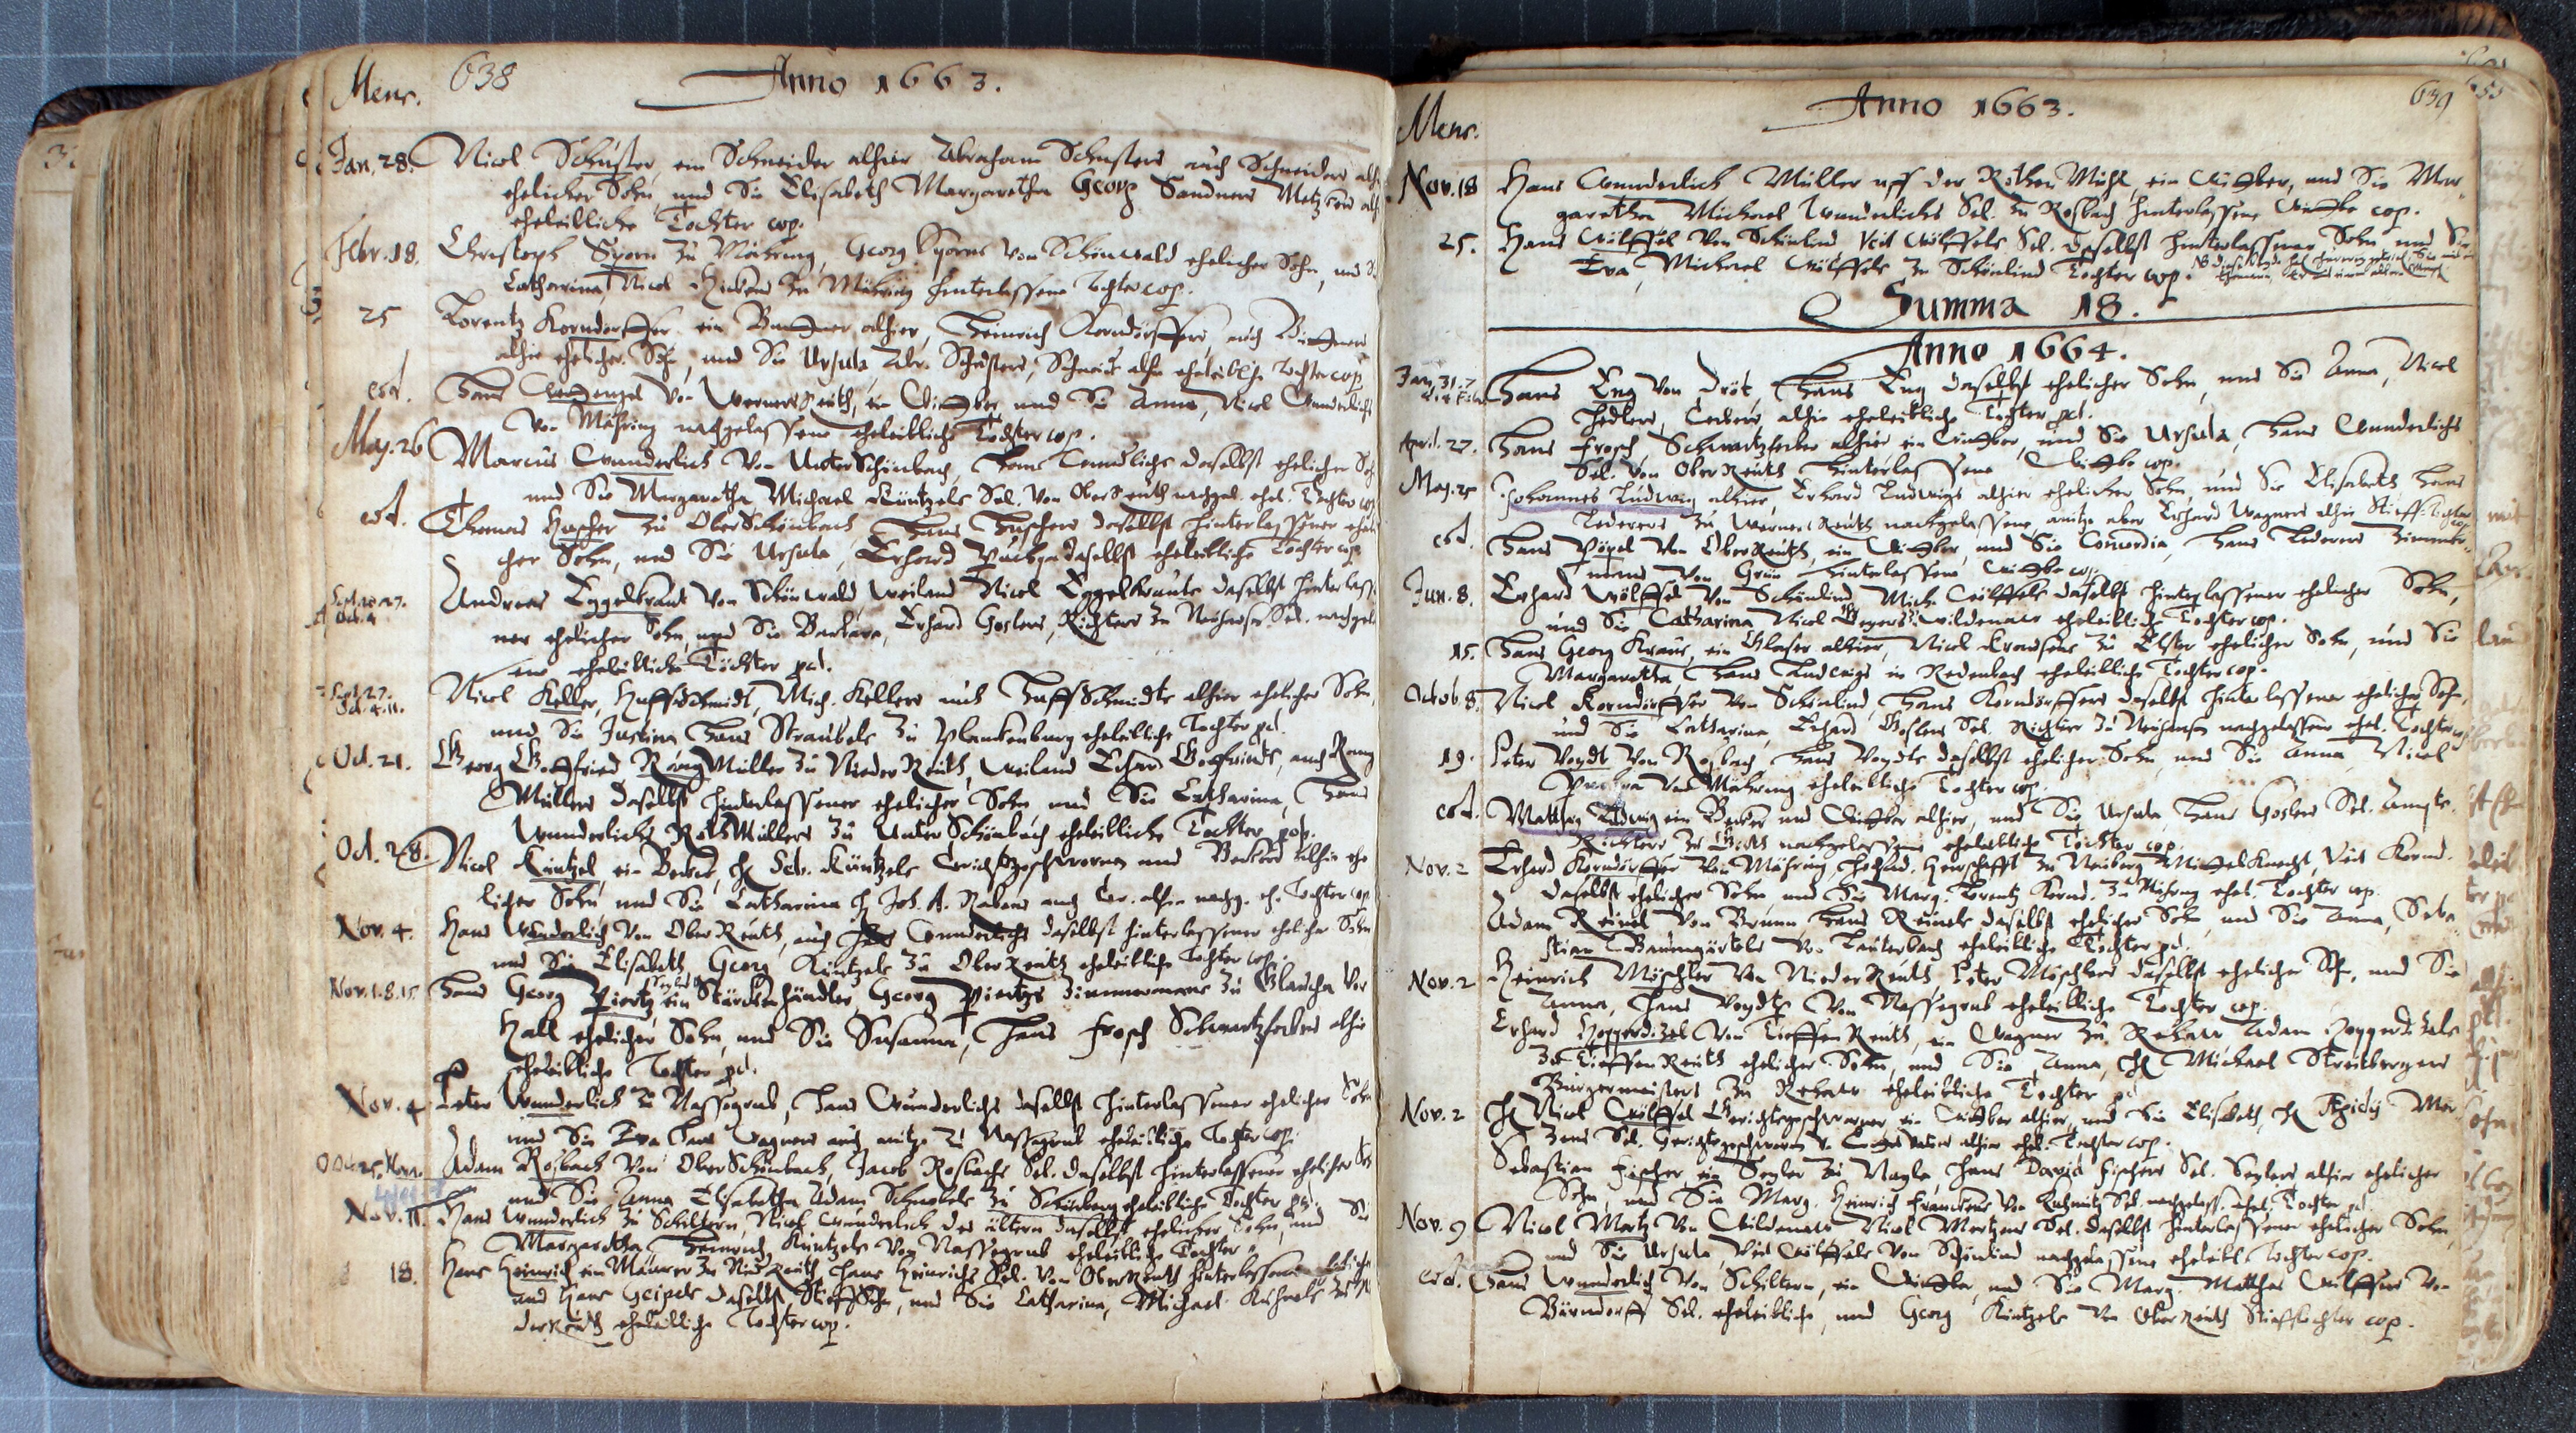 638
Anno 1663.
Mens.
Jan. 28. Nicol Schuster, ein Schneider alhier Abraham Schusters auch Schneiders alh
ehelicher Sohn, und Sie Elisabeth Margaretha Georg Sandners Metzkers alh
eheleibliche Tochter cop.
Febr. 18. Christoph Sporn zu Mähring, Georg Sporns von Schönwald ehelicher Sohn, und S
Catharina, Nicol zu Mähring hinterlassene Tochter cop.
25 Lorentz Korndörffer ein Büttner alhier, Heinrich Korndörffers, auch Büttners
alhie ehelicher Sohn, und Sie Ursula Abr. Schusters, Schneid. alhie eheleibliche Tochter cop
eod. Hans von Wernersreuth, ein Wittber und Sie Anna, Nicol Wunderlichs
von Mähring nachgelassene eheleibliche Tochter cop.
Maj. 26 Marcus Wunderlich von UnterSchönbach, Hans Wunderlichs daselbst ehelicher Soh
und Sie Margaretha Michael Küntzels Sel. von OberReuth nachgel. ehel. Tochter cop
eod. Thomas Huscher zu OberSchönbach, Hans Huschers daselbst hinterlassener eheli
cher Sohn, und Sie Ursula, Erhard daselbst eheleibliche Tochter cop
Sept. 20. 27.
Oct. 4
Andreas Eggelkraut von Schönwald, weiland Nicol Eggelkrauts daselbst hinterlasse
ner ehelicher Sohn, und Sie Barbara, Erhard Goslers, Richters zu Neuhausen Sel. nachgela
ene eheleibliche Tochter pcl.
Sept. 27.
Oct. 4. 11.
Nicol Keller, Huffschmidt, Mich. Kellers auch Huffschmidts alhier ehelicher Sohn,
und Sie Justina Hans Straubels zu Plankenburg eheleibliche Tochter pcl.
Oct. 21. Georg Gottfried, RangMüller zu NiederReuth, weiland Erhard Gottfrieds, auch Rang
Müllers daselbst hinterlassener ehelicher Sohn und Sie Catharina, Hans
Wunderlichs RothMüllers zu UnterSchönbach eheleibliche Tochter cop.
Oct. 28. Nicol Küntzel ein Becker, H. Seb. Küntzels Gerichtsgeschworner und Beckers alhie ehe
licher Sohn und Sie Catharina H. Joh. A. Rabens auch alhie nachg. eh. Tochter cop
Nov. 4. Hans Wunderlich von OberReuth, auch Hans Wunderlichs daselbst hinterlassener ehelicher Sohn
und Sie Elisabeth, Georg Küntzels zu OberReuth eheleibliche Tochter cop.
Nov. 1. 8. 15 Hans Georg Piertz, ein Stärckenhändler, Georg Piertzs Zimmermans zu Glaucha vor
Hall ehelicher Sohn, und Sie Susanna, Hans Frosch Schwartzferbers alhie
eheleibliche Tochter pcl.
Nov. 4 Peter Wunderlich zu Nassegrub, Hans Wunderlichs daselbst hinterlassener ehelicher Sohn
und Sie Eva Hans Wagners auch anitzo zu Nassegrub eheleibliche Tochter cop.
Oct. 25. Nov. Adam Rosbach von OberSchönbach, Jacob Rosbachs Sel. daselbst hinterlassener ehelicher Soh
und Sie Anna Elisabetha Adam Schnabels zu Schönberg eheleibliche Tochter pcl.
Nov. 11. Hans Wunderlich zu Schiltern, Nicol Wunderlich des ältern daselbst ehelicher Sohn, und Sie
Margaretha Heinrich Küntzels von Nassegrub eheleibliche Tochter.
18. Hans Heinrich ein Maurer zu NiedReuth, Hans Heinrichs Sel. von OberReuth hinterlassener ehelicher
und Hans Geipels daselbst StieffSohn, und Sie Catharina, Michael zu
derReuth eheleibliche Tochter cop.
639
Anno 1663.
Mens.
Nov. 18 Hans Wunderlich Müller uff der Rothen Mühl, ein Wittber, und Sie Mar
garetha Michael Wunderlichs Sel. zu Rosbach hinterlassene Wittbe cop.
25. Hans Wölffel von Schönlind Veit Wölffels Sel. daselbst hinterlassener Sohn und Sie
Eva, Michael Wölffels zu Schönlind Tochter cop.
Summa 18.
Anno 1664.
Jan. 31. 7
Hans Eng von Dröt, Hans Eng daselbst ehelicher Sohn, und Sie Anna, Nicol
Hedlers, alhie eheleibliche Tochter pcl.
April. 27. Hans Frosch, Schwartzferber alhier ein Wittber, und Sie Ursula, Hans Wunderlichs
Sel. von OberReuth hinterlassene Wittbe cop.
Maj. 25 Johannes Ludwig alhier, Erhard Ludwigs alhier ehelicher Sohn, und Sie Elisabeth Hans
Lederers zu WernersReuth nachgelassene anitzo aber Erhard Wagners alhie Stieff-Tochter
cop
eod. Hans Pöpel von OberReuth, ein Wittber, und Sie Concordia, Hans Lederers Zimmer
mans von Grün hinterlassene Wittbe cop.
Jun. 8. Erhard Wölffel von Schönlind, Mich. Wölffels daselbst hinterlassener ehelicher Sohn,
und Sie Catharina Nicol Beyers Wildenau eheleibliche Tochter cop.
15. Hans Georg Kraus, ein Glaser alhier, Nicol Krausens zu Elster ehelicher Sohn, und Sie
Margaretha Hans Ludwigs in Redenbach eheleibliche Tochter cop.
Octob. 8. Nicol Korndörffer von Schönlind, Hans Korndörffers daselbst hinterlassener ehelicher Sohn,
und Sie Catharina, Erhard Goslers Sel. Richters zu Neuhausen nachgelassene ehel. Tochter cop
19. Peter Voydt von Rosbach, Hans Voydts daselbst ehelicher Sohn, und Sie Anna, Nicol
von Mähring eheleibliche Tochter cop.
eod. Matthes Ludwig ein Becker und Wittber alhier, und Sie Ursula, Hans Goslers Sel. Ampts
Richters zu nachgelassene eheleibliche Tochter cop.
Nov. 2 Erhard Korndörffer von Mähring, Herschafft zu Neiberg MittelKnecht, Veit Kornd.
daselbst ehelicher Sohn, und Sie Marg. Lorentz Kornd. zu Mähring ehel. Tochter cop.
Adam Reinel von Brunn, Hans Reinels daselbst ehelicher Sohn, und Sie Anna, Seba
stian Baumgärtels von Lauterbach eheleibliche Tochter pcl.
Nov. 2 Heinrich Möschler von NiederReuth, Peter Möschlers daselbst ehelicher Sohn, und Sie
Anna, Hans Voydts von Nassegrub eheleibliche Tochter cop.
Erhard Hopperdizel von TieffenReuth, ein Wagner zu Rehau Adam Hopperdizels
zu TieffenReuth ehelicher Sohn, und Sie Anna, H. Michael Streitbergers
Bürgermeisters zu Rehau eheleibliche Tochter pcl
Nov. 2 H. Nicol Wölffel Gerichtsgeschworner, ein Wittber alhier, und Sie Elisabeth, H. Ægidij Mer
zens Sel. Gerichtsgeschworn. alhier ehel. Tochter cop.
Sebastian Fischer, ein Seyler zu Nayla, Hans David Fischers Sel. Seylers alhier ehelicher
Sohn, und Sie Marg. Heinrich Franckens von Sel. nachgelass. ehel. Tochter pcl
Nov. 9 Nicol Mertz von Wildenau Nicol Mertzens Sel. daselbst hinterlassener ehelicher Sohn,
und Sie Ursula, Veit Wölffels von Schönlind nachgelassene eheleibl. Tochter cop.
eod. Hans Wunderlich von Schiltern, ein Wittber, und Sie Marg. Matthes Wölffels von
Bärndorff Sel. eheleibliche, und Georg Küntzels von OberReuth Stieftochter cop.